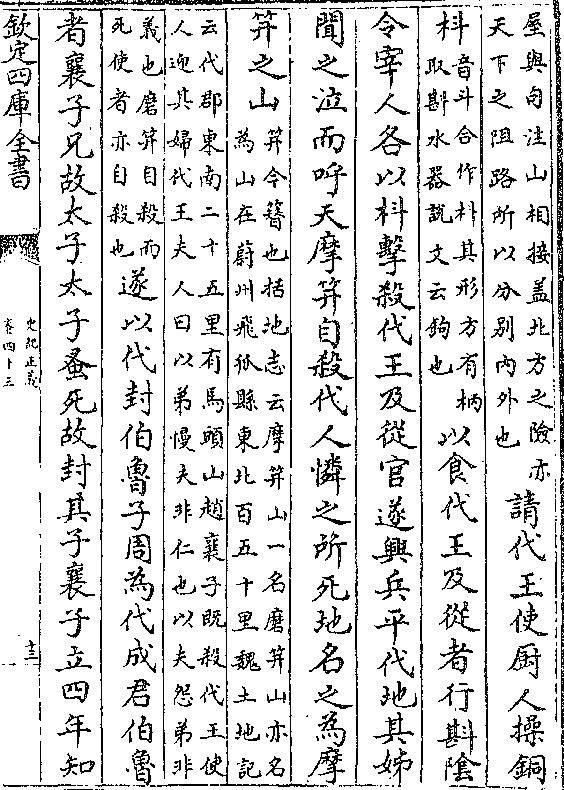 屋與句注山相接盖北方之險亦
天下之阻路所以分别内外也
請代王使厨人操銅
枓
音斗合作朴其形方有柄
取斟水器說文云鉤也
以食代王及從者行斟隂
令宰人各以枓擊殺代王及從官遂興兵平代地其姊
聞之泣而呼天摩笄自殺代人憐之所死地名之為摩
笄之山
笄今簪也括地志云摩笄山一名磨笄山亦名
為山在蔚州飛狐縣東北百五十里魏土地記
云代郡東南二十五里有馬頭山趙襄子既殺代王使
人迎其婦代王夫人曰以弟慢夫非仁也以夫怨弟非
義也磨笄自殺而
死使者亦自殺也
遂以代封伯魯子周為代成君伯魯
者襄子兄故太子太子蚤死故封其子襄子立四年知
欽定四庫全書
史記正義
卷四十三
十三